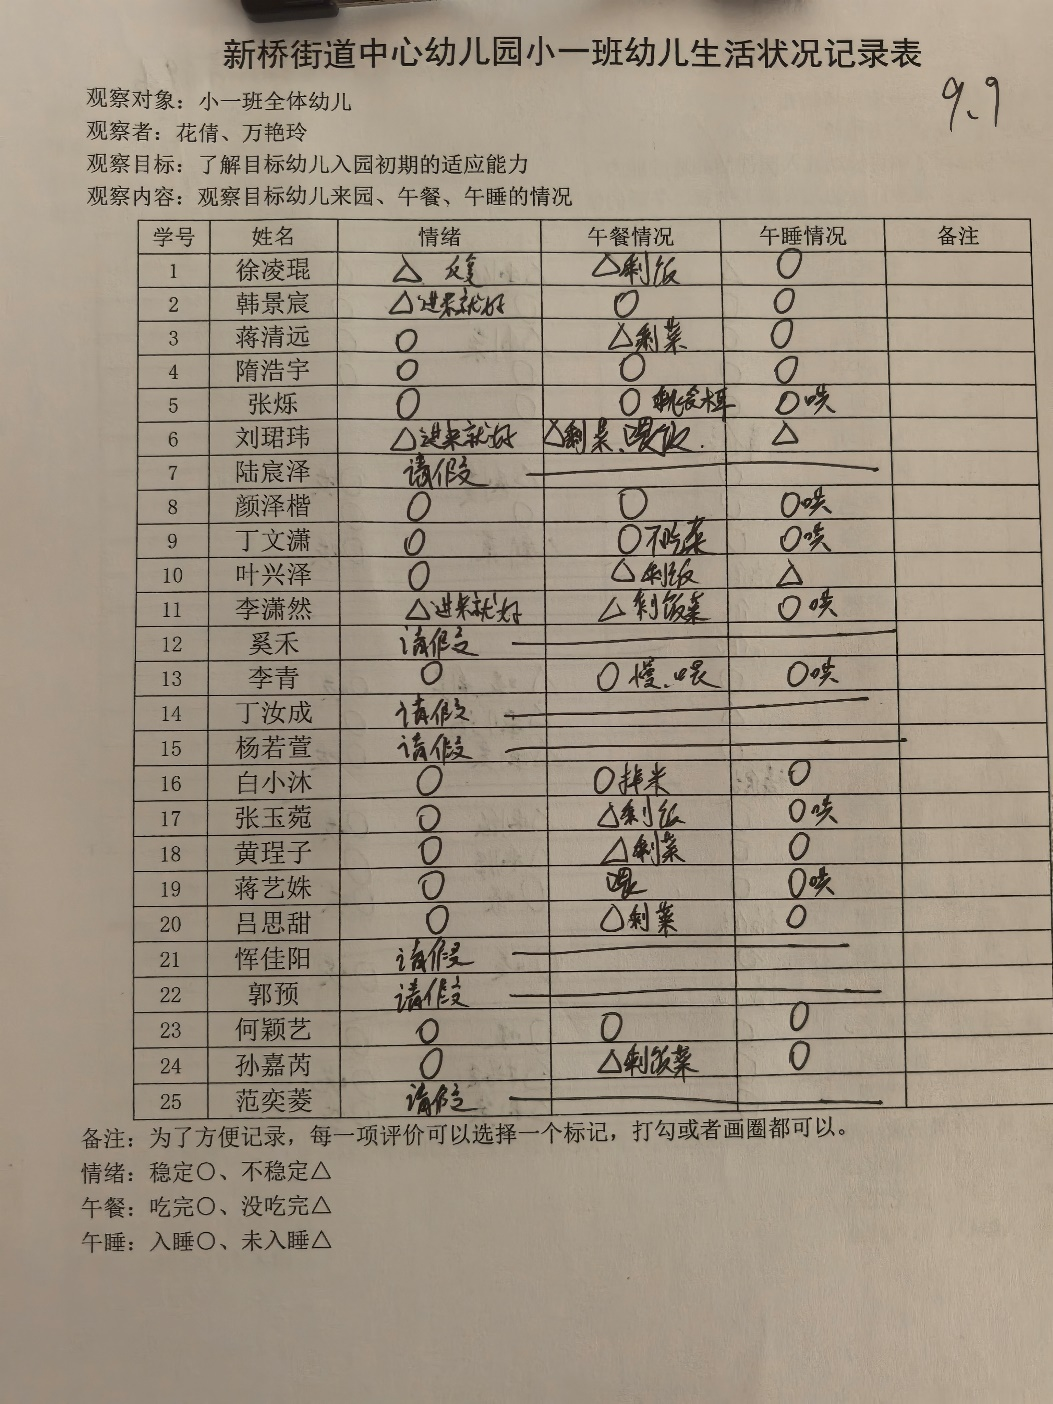 新桥街道中心幼儿园小一班幼儿生活状况记录表
9.9
观察对象：小一班全体幼儿
观察者：花倩、万艳玲
观察目标：了解目标幼儿入园初期的适应能力
观察内容：观察目标幼儿来园、午餐、午睡的情况
学号 姓名 情绪 午餐情况 午睡情况 备注
1 徐凌琨 △ 反复 △剩饭 〇
2 韩景宸 △进来就好 〇 〇
3 蒋清远 〇 △剩菜 〇
4 隋浩宇 〇 〇 〇
5 张烁 〇 〇 挑食木耳 〇哄
6 刘珺玮 △进来就好 △剩菜、喂饭. △
7 陆宸泽 请假
8 颜泽楷 〇 〇 〇哄
9 丁文潇 〇 〇不吃菜 〇哄
10 叶兴泽 〇 △剩饭 △
11 李潇然 △进来就好 △剩饭菜 〇哄
12 奚禾 请假
13 李青 〇 〇慢、喂 〇哄
14 丁汝成 请假
15 杨若萱 请假
16 白小沐 〇 〇掉米 〇
17 张玉菀 〇 △剩饭 〇哄
18 黄珵子 〇 △剩菜 〇
19 蒋艺姝 〇 喂 〇哄
20 吕思甜 〇 △剩菜 〇
21 恽佳阳 请假
22 郭预 请假
23 何颖艺 〇 〇 〇
24 孙嘉芮 〇 △剩饭菜 〇
25 范奕菱 请假
备注：为了方便记录，每一项评价可以选择一个标记，打勾或者画圈都可以。
情绪：稳定〇、不稳定△
午餐：吃完〇、没吃完△
午睡：入睡〇、未入睡△